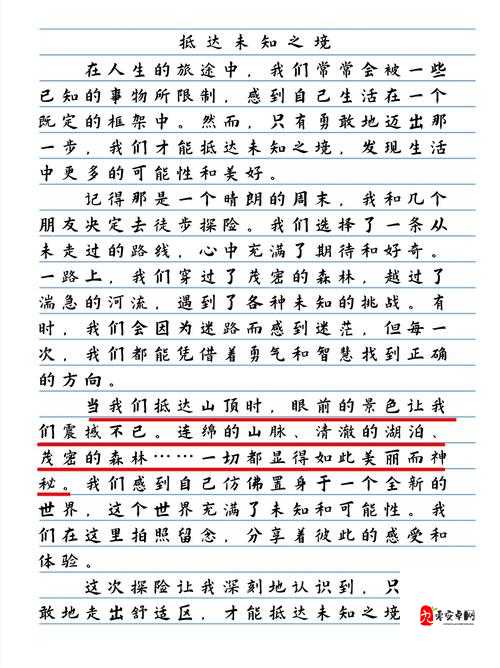 抵达未知之境
在人生的旅途中，我们常常会被一些
已知的事物所限制，感到自己生活在一个
既定的框架中。然而，只有勇敢地迈出那
一步，我们才能抵达未知之境，发现生活
中更多的可能性和美好。
记得那是一个晴朗的周末，我和几个
朋友决定去徒步探险。我们选择了一条从
未走过的路线，心中充满了期待和好奇。
一路上，我们穿过了茂密的森林，越过了
湍急的河流，遇到了各种未知的挑战。有
时，我们会因为迷路而感到迷茫，但每一
次，我们都能凭借着勇气和智慧找到正确
的方向。
当我们抵达山顶时，眼前的景色让我
们震撼不已。连绵的山脉、清澈的湖泊、
茂密的森林……一切都显得如此美丽而神
秘。我们感到自己仿佛置身于一个全新的
世界，这个世界充满了未知和可能性。我
们在这里拍照留念，分享着彼此的感受和
体验。
这次探险让我深刻地认识到，只
敢地走出舒适区，才能抵达未知之境
零安卓网